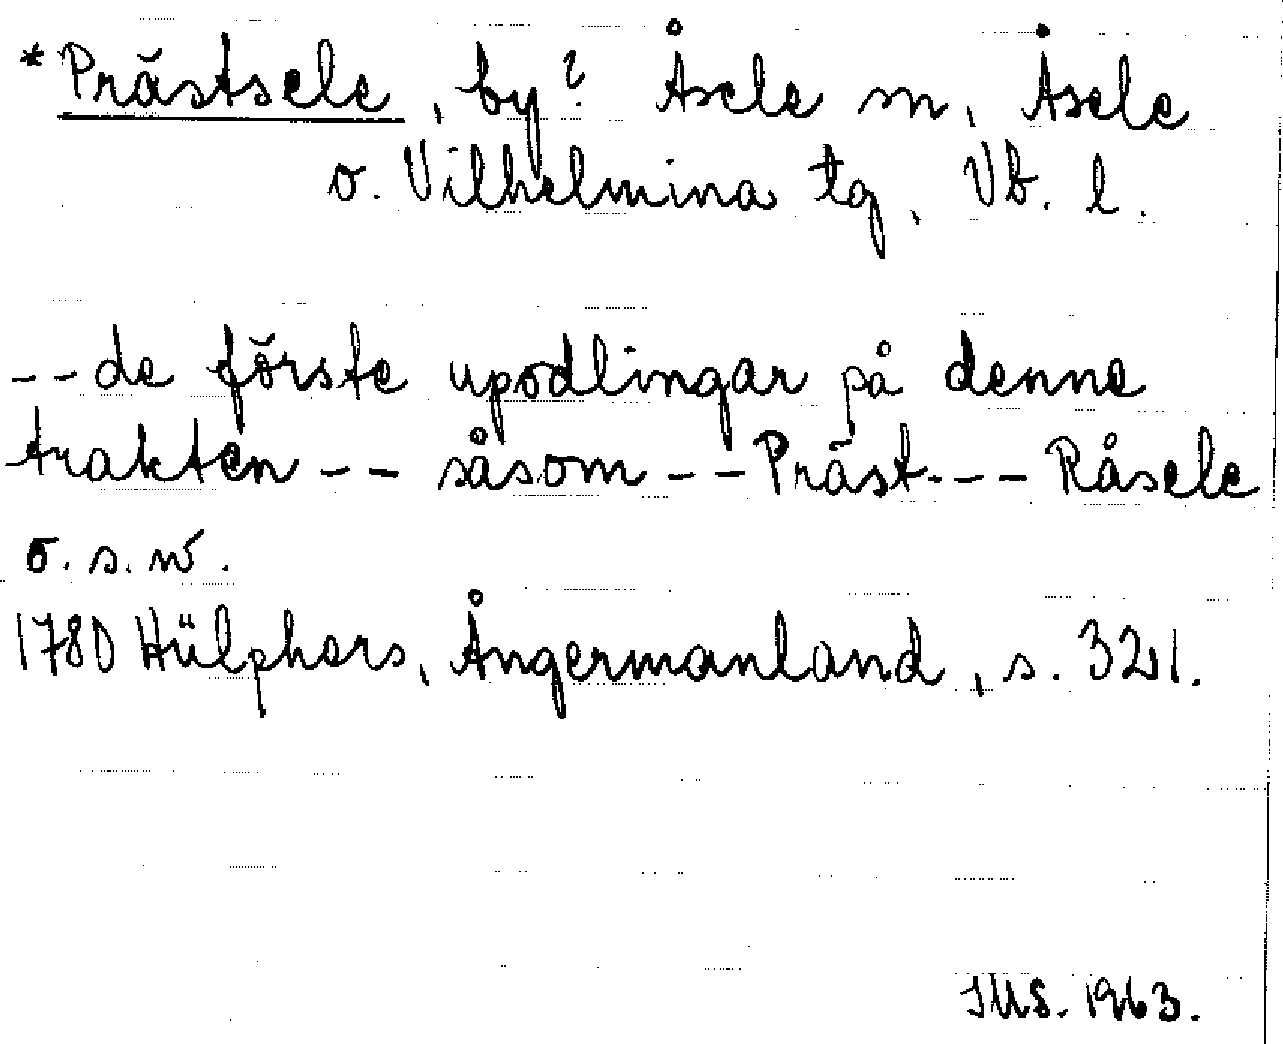 *Prästsele, by? Åsele sn, Åsele
o. Vilhelmina tg, Vb. l.
--de förste upodlingar på denne
trakten -- såsom --Präst--- Råsele
o.s.w.
1780 Hülphers, Ångermanland, s. 321.
JMS. 1963.